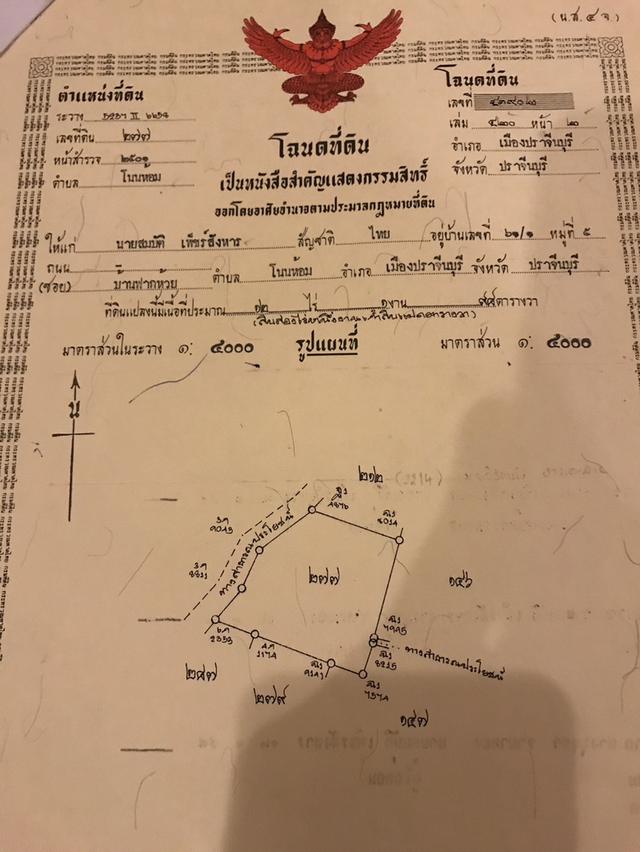 (น.ส.๔ จ.)
ตำแหน่งที่ดิน
ระวาง ๕๒๓๖ II ๖๖๕๘
เลขที่ดิน ๒๗๗
หน้าสำรวจ ๒๕๐๑
ตำบล โนนห้อม
โฉนดที่ดิน
เลขที่
เล่ม ๔๒๐ หน้า ๒
อำเภอ เมืองปราจีนบุรี
จังหวัด ปราจีนบุรี
โฉนดที่ดิน
เป็นหนังสือสำคัญแสดงกรรมสิทธิ์
ออกโดยอาศัยอำนาจตามประมวลกฎหมายที่ดิน
ให้แก่ นายสมบัติ เพ็ชร์สังหาร สัญชาติ ไทย อยู่บ้านเลขที่ ๖๑/๑ หมู่ที่ ๕
ถนน - ตำบล โนนห้อม อำเภอ เมืองปราจีนบุรี จังหวัด ปราจีนบุรี
(ซอย) บ้านฟากห้วย
ที่ดินแปลงนี้มีเนื้อที่ประมาณ ๑๒ ไร่ ๑ งาน ตารางวา
มาตราส่วนในระวาง ๑: ๕๐๐๐ รูปแผนที่ มาตราส่วน ๑: ๕๐๐๐
น
๒๑๒
ฉ১
4876
ฉ১
8014
รก
9045
รก
8811
ทางสาธารณประโยชน์
๒๗๗
๑๔๖
7995
8215
ทางสาธารณประโยชน์
2353
1174
9141
7574
๒๘๗
๒๗๙
๑๔๗